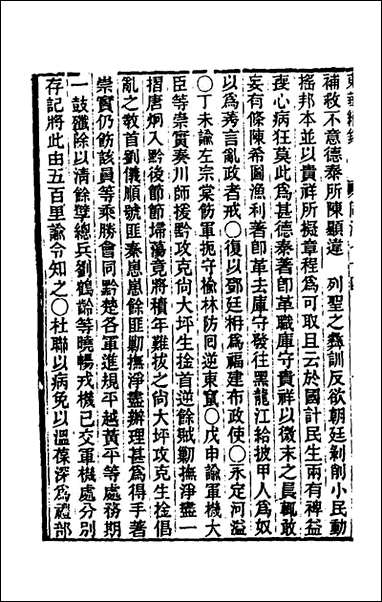 補救不意德泰所陳顯違　列聖之彝訓反欲朝廷剝削小民動
搖邦本並以貴祥所擬章程爲可取且云於國計民生兩有裨益
喪心病狂莫此爲甚德泰著即革職庫守貴祥以微末之員輒敢
妄有條陳希圖漁利著卽革去庫守發往黑龍江給披甲人爲奴
以爲莠言亂政者戒○復以鄧廷枏爲福建布政使○永定河溢
○丁未諭左宗棠飭軍扼守榆林防囘逆東竄○戊申諭軍機大
臣等崇實奏川師援黔攻克尙大坪生擒首逆餘賊勦撫淨盡一
摺唐炯入黔後節節埽蕩竟將積年難拔之尙大坪攻克生擒倡
亂之教首劉儀順號匪秦崽崽餘匪勦撫淨盡辦理甚爲得手著
崇實仍飭該員等乘勝會同黔楚各軍進規平越黃平等處務期
一鼓殲除以清餘孽總兵劉鶴齡等曉暢戎機已交軍機處分別
存記將此由五百里諭令知之○杜聯以病免以溫葆深爲禮部